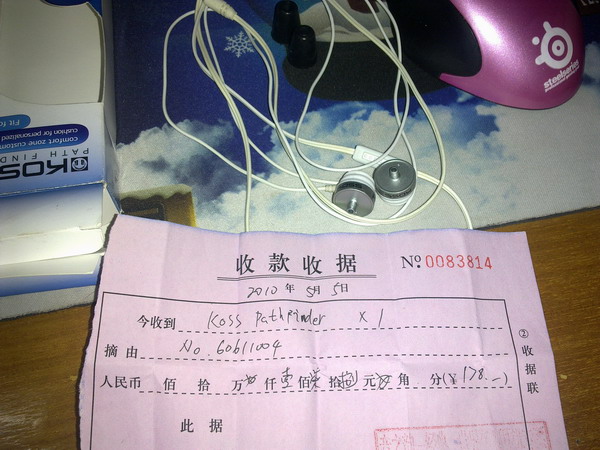 steelseries
KOSS
PATH FIND
comfort zone custom
cushion for personalized
Fit fo
收款收据 No. 0083814
2010 年 5月 5日
今收到 Koss Pathfinder X 1
摘由 No. 60611004
人民币 佰 拾 万 仟 壹 佰 柒 拾 捌 元 角 分(¥ 178.—)
此据
②收据联